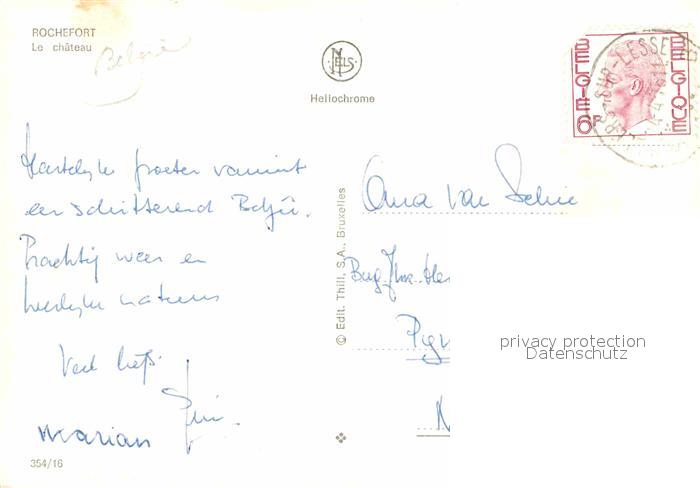 ROCHEFORT
Le château
België
NELS
Heliochrome
BELGIE BELGIQUE
6F
SUR-LESSE
Hartelijke groeten vanuit
een schitterend België.
Prachtig weer en
heerlijke natuur
Veel liefs
Marian
© Edit. Thill, S.A., Bruxelles
Anna van
Burg.
privacy protection
Datenschutz
N
354/16